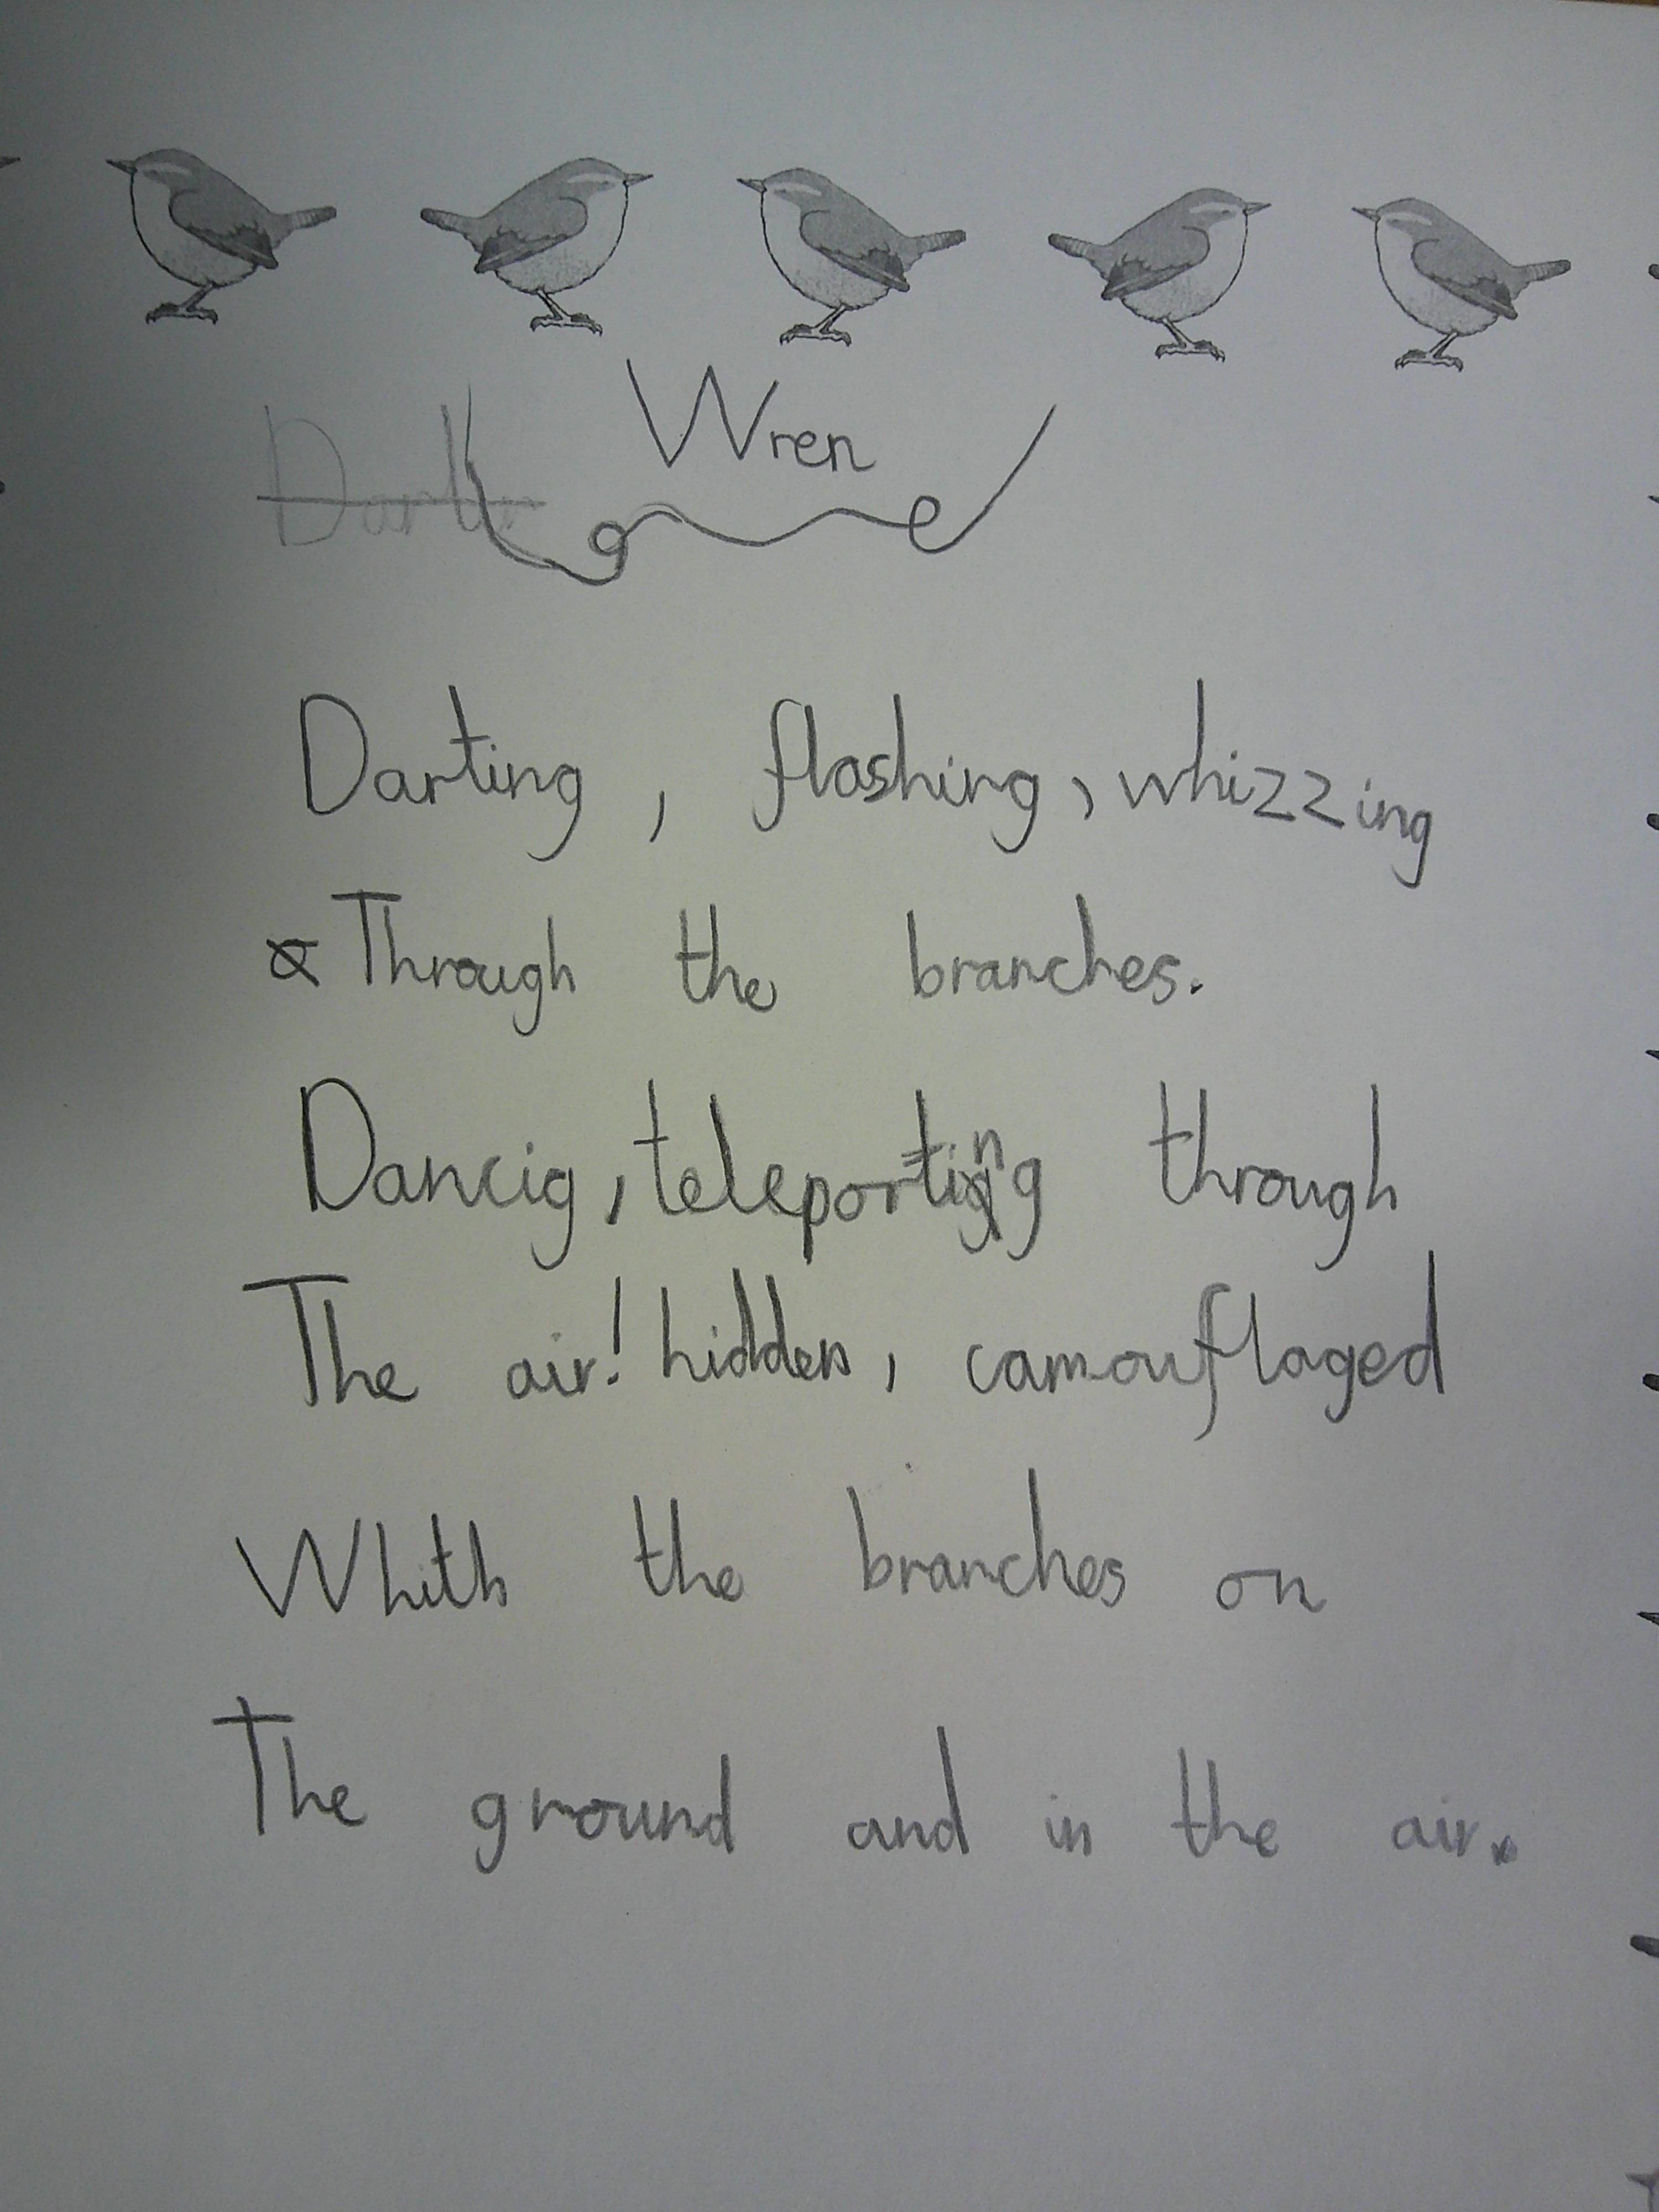 Wren
Darting, flashing, whizzing
Through the branches.
Dancig, teleporting through
The air! hidden, camouflaged
Whith the branches on
The ground and in the air.